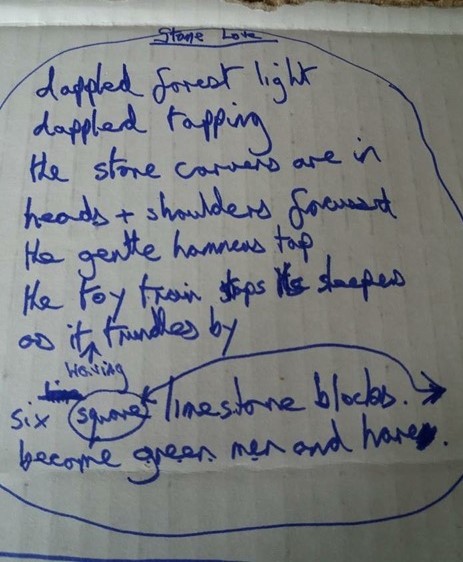 Stone Love
dappled forest light
dappled tapping
the stone carvers are in
heads + shoulders focused
the gentle hammers tap
the toy train stops its sleepers
as it trundles by
waiting
six square limestone blocks.
become green men and hares.